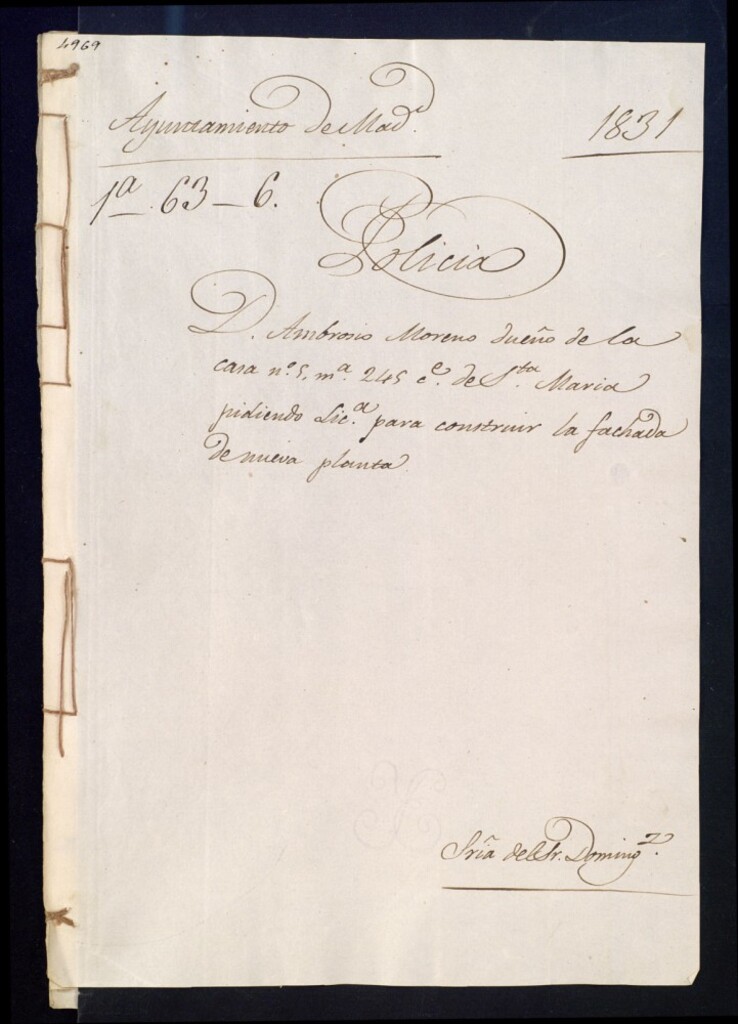 4969
Ayuntamiento de Mad.d 1831
1ª 63-6.
Policia
D. Ambrosio Moreno dueño de la
casa nº. 5. mª. 245 c.e de S.ta Maria
pidiendo Lic.a para construir la fachada
de nueva planta
Sría del Sr. Doming.z